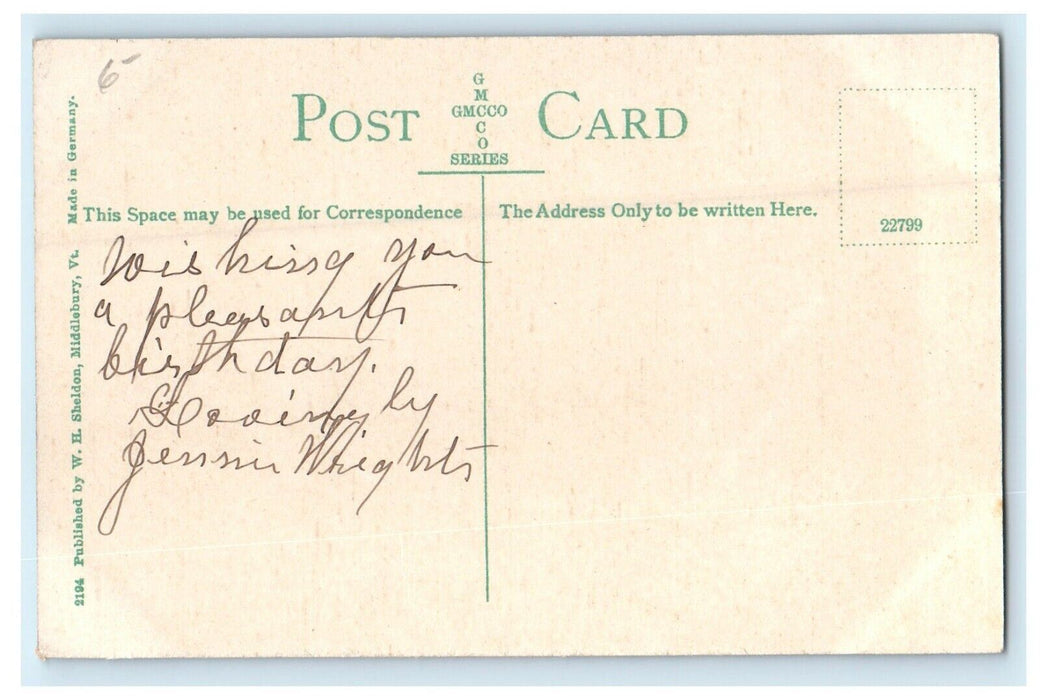 6-
POST CARD
G
M
GMCCO
C
O
SERIES
This Space may be used for Correspondence
The Address Only to be written Here.
22799
Wishing you
a pleasant
birthday.
Lovingly
Jennie Wright
2194 Published by W. H. Sheldon, Middlebury, Vt. Made in Germany.